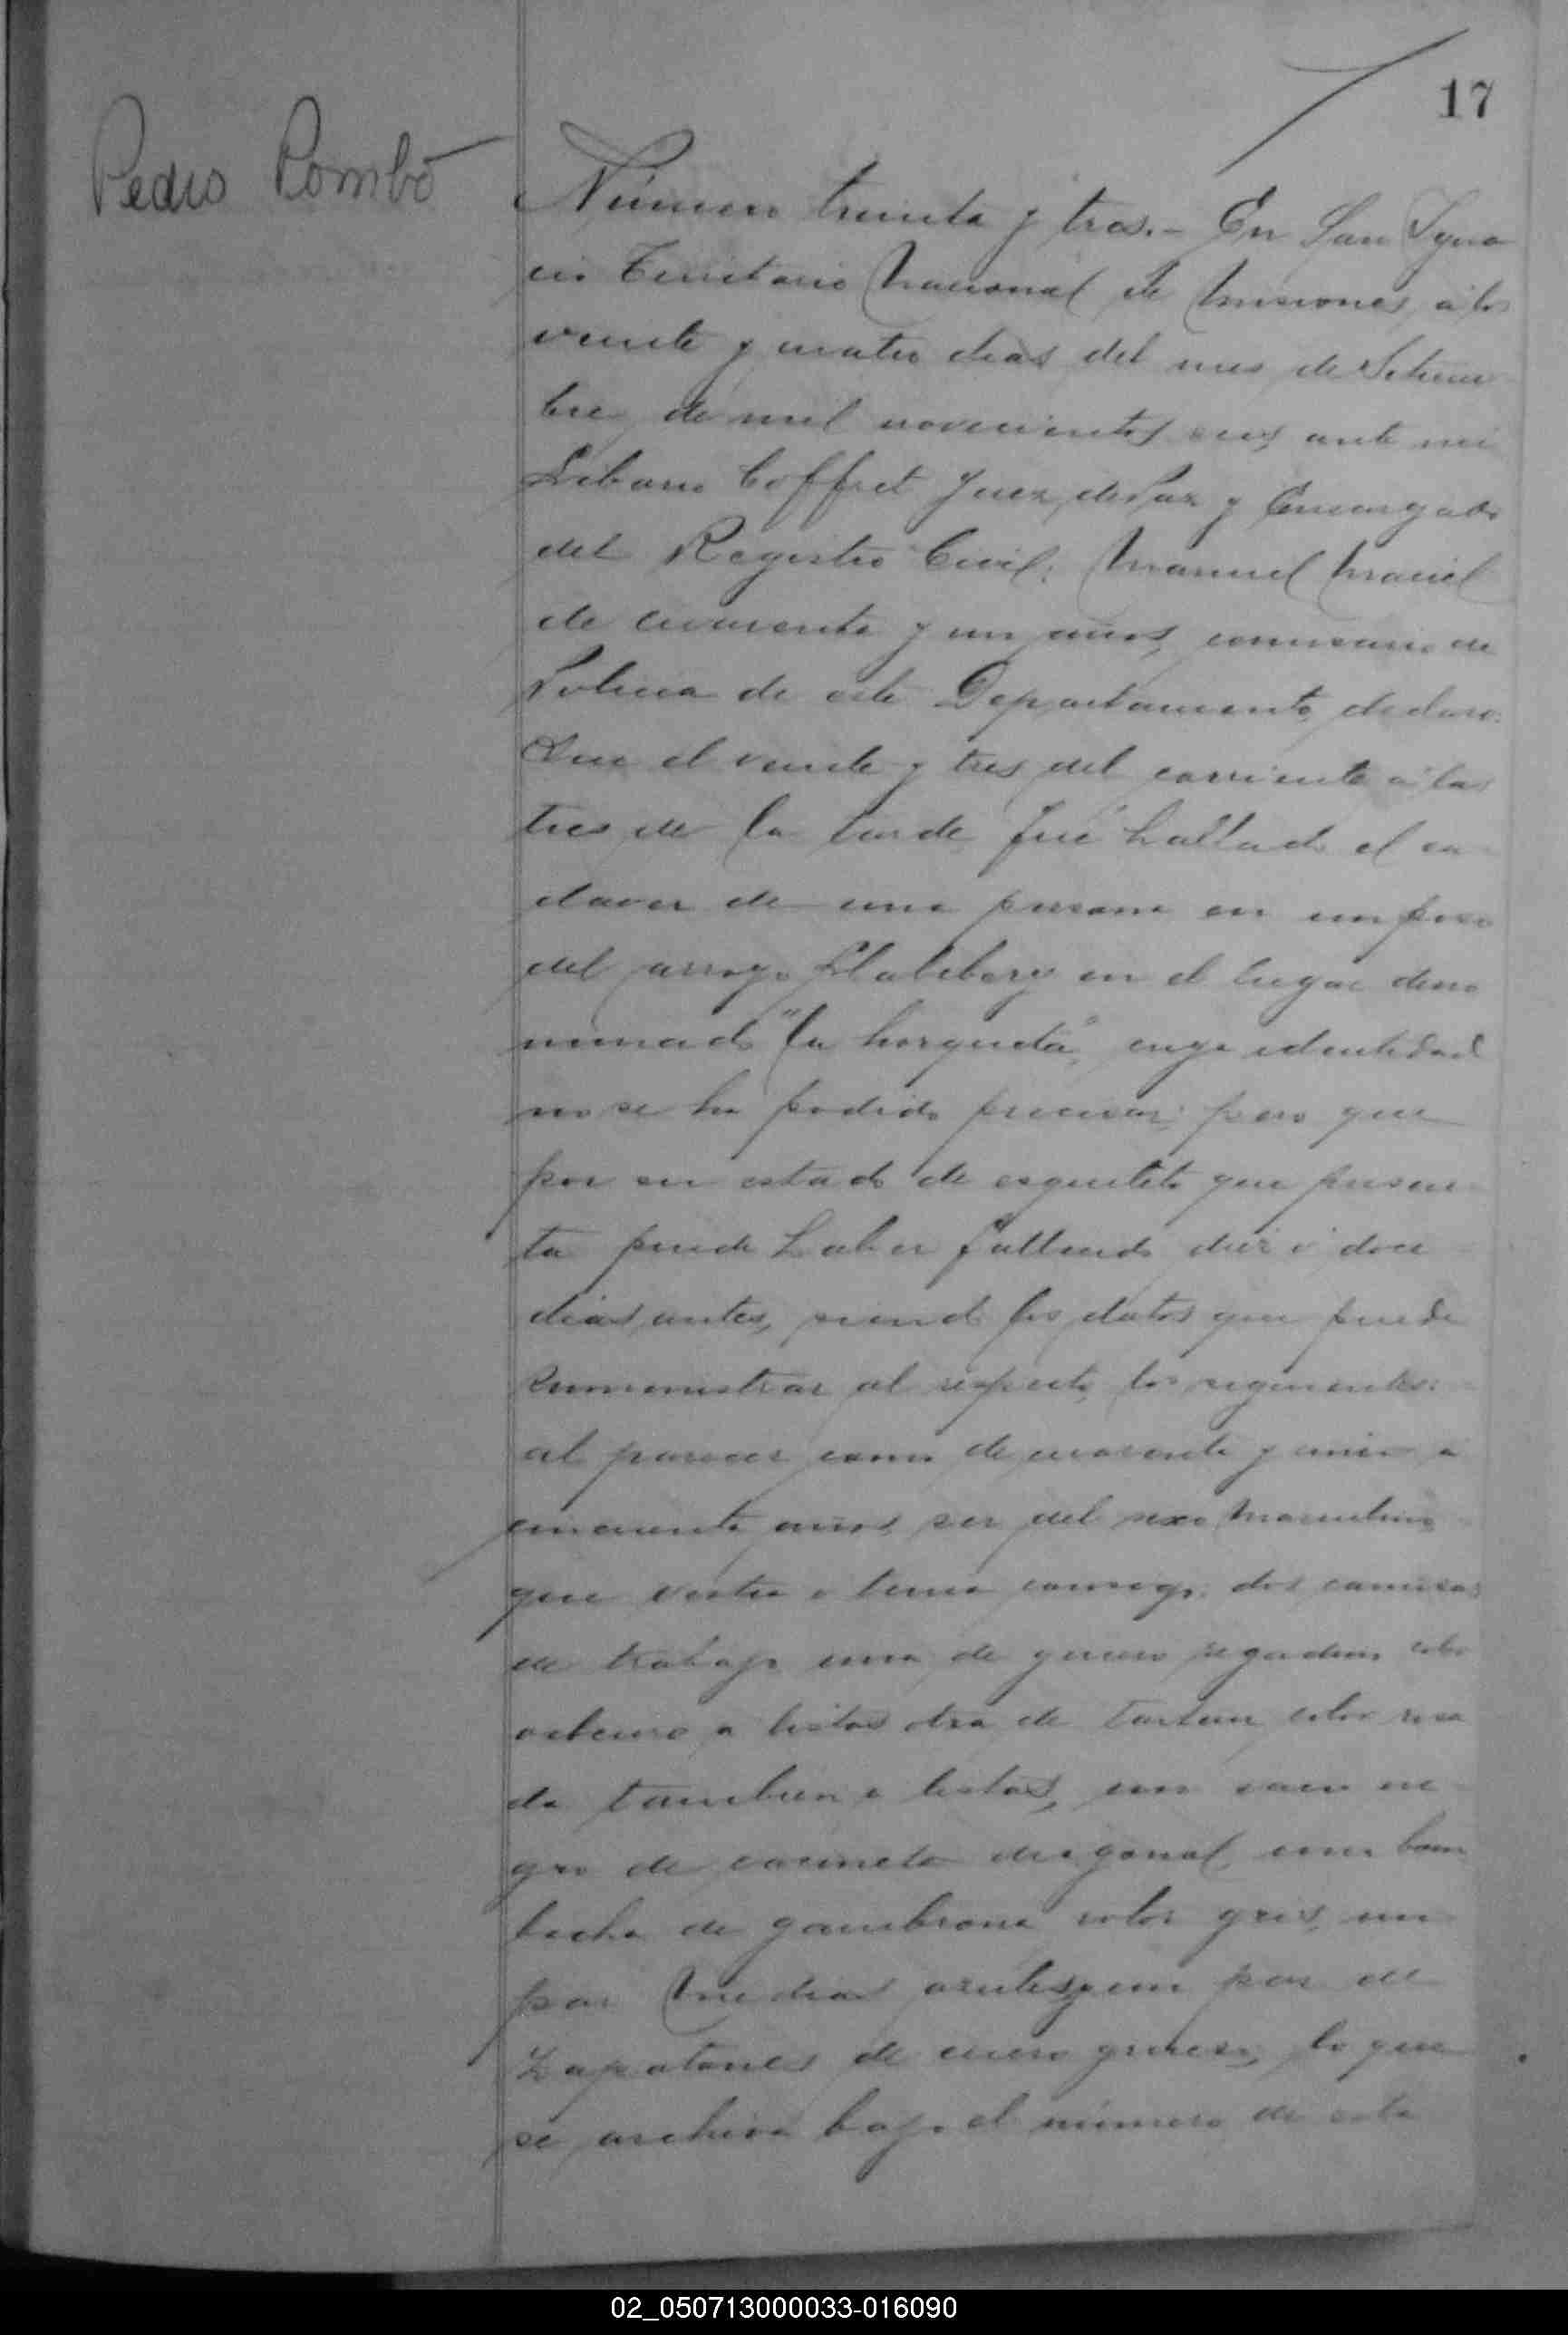 17
Pedro Pombo
Número treinta y tres.- En San Igna
cio Territorio Nacional de Misiones, á los
veinte y cuatro dias del mes de Setiem
bre de mil novecientos seis, ante mi
Coffret Juez de Paz y Encargado
del Registro Civil: Manuel Maciel
de cuarenta y un años, comisario de
Policia de este Departamento, declaró:
Que el veinte y tres del corriente á las
tres de la tarde fué hallado el ca
daver de una persona en un poso
del arroyo en el lugar deno
minado "la horqueta", cuya identidad
no se ha podido precisar; pero que
por su estado de esqueleto que presen
ta puede haber fallecido diez ó doce
dias antes, siendo los datos que puede
suministrar al respecto, los siguientes:
al parecer como de cuarenta y cinco a
cincuenta años, ser del sexo masculino
que vestia o tenia consigo: dos camisas
de trabajo una de genero color
oscuro a listas otra de tartan color rosa
do tambien a listas, un saco ne
gro de casineta diagonal, una bom
bacha de gambrona color gris, un
par medias y un par de
zapatones de cuero grueso, lo que
se archiva bajo el número de esta
02_050713000033-016090